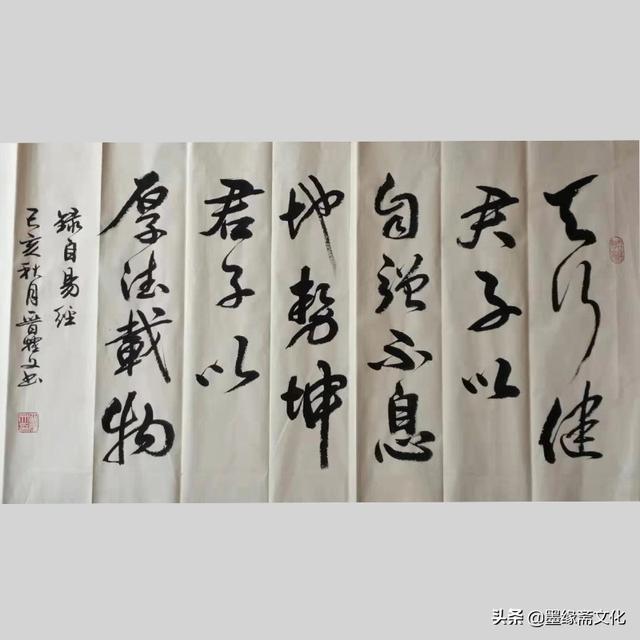 天行健
君子以
自强不息
地势坤
君子以
厚德載物
録自易经
己亥秋月晋
头条 @墨缘斋文化